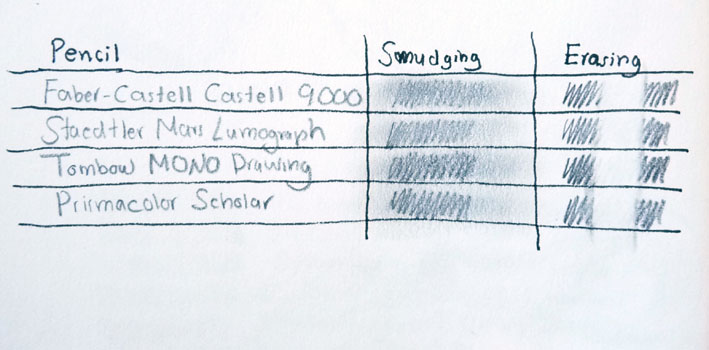 Pencil Smudging Erasing
Faber-Castell Castell 9000
Staedtler Mars Lumograph
Tombow MONO Drawing
Prismacolor Scholar